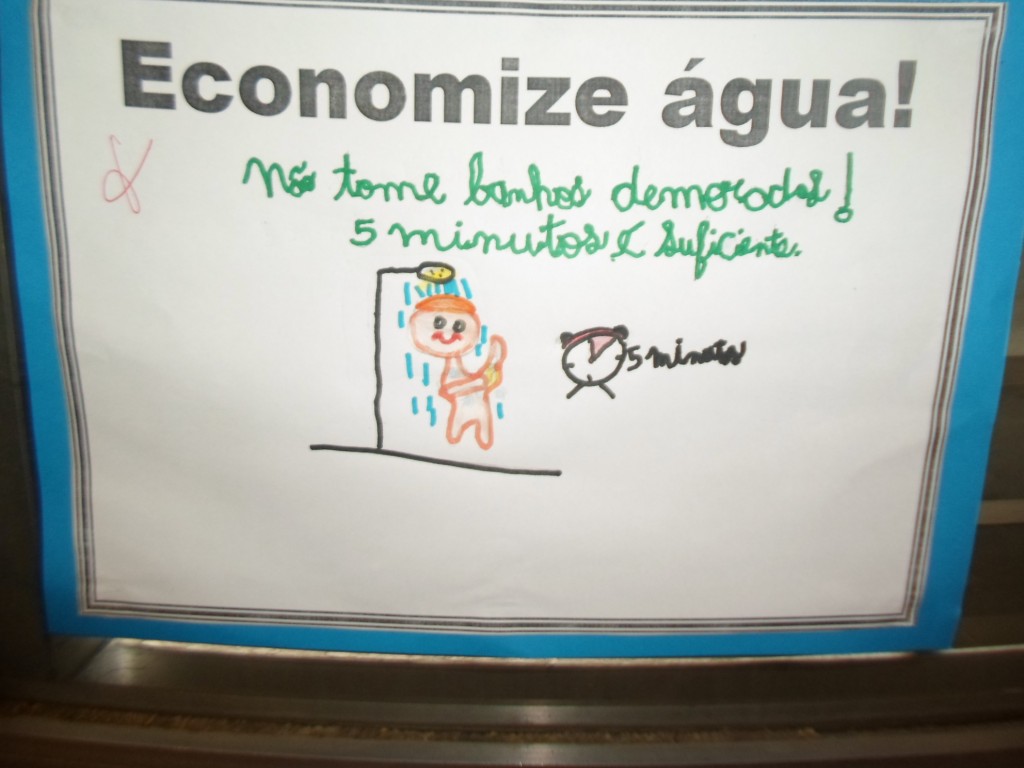 Economize água!
Não tome banhos demorados!
5 minutos é suficiente.
5 minutos